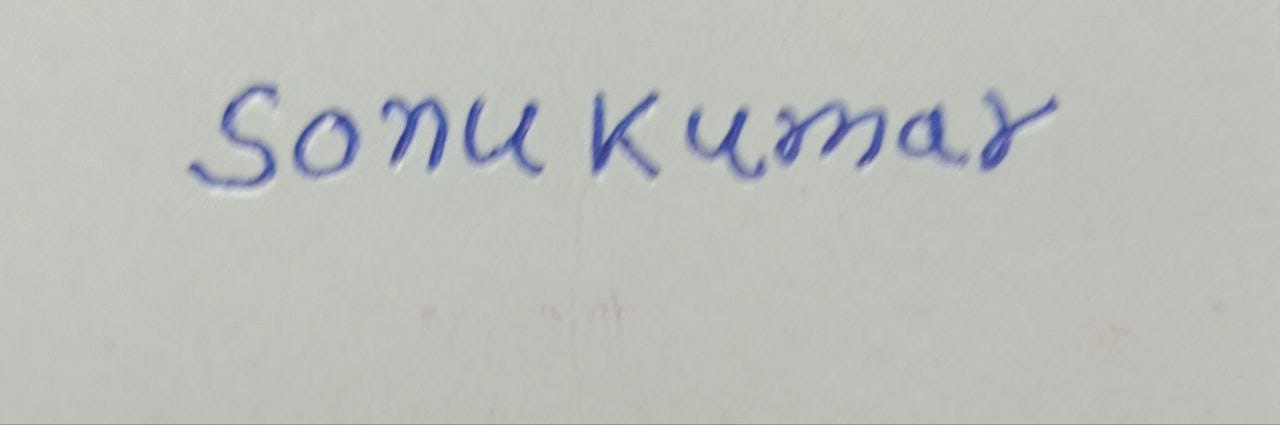 Sonu Kumar